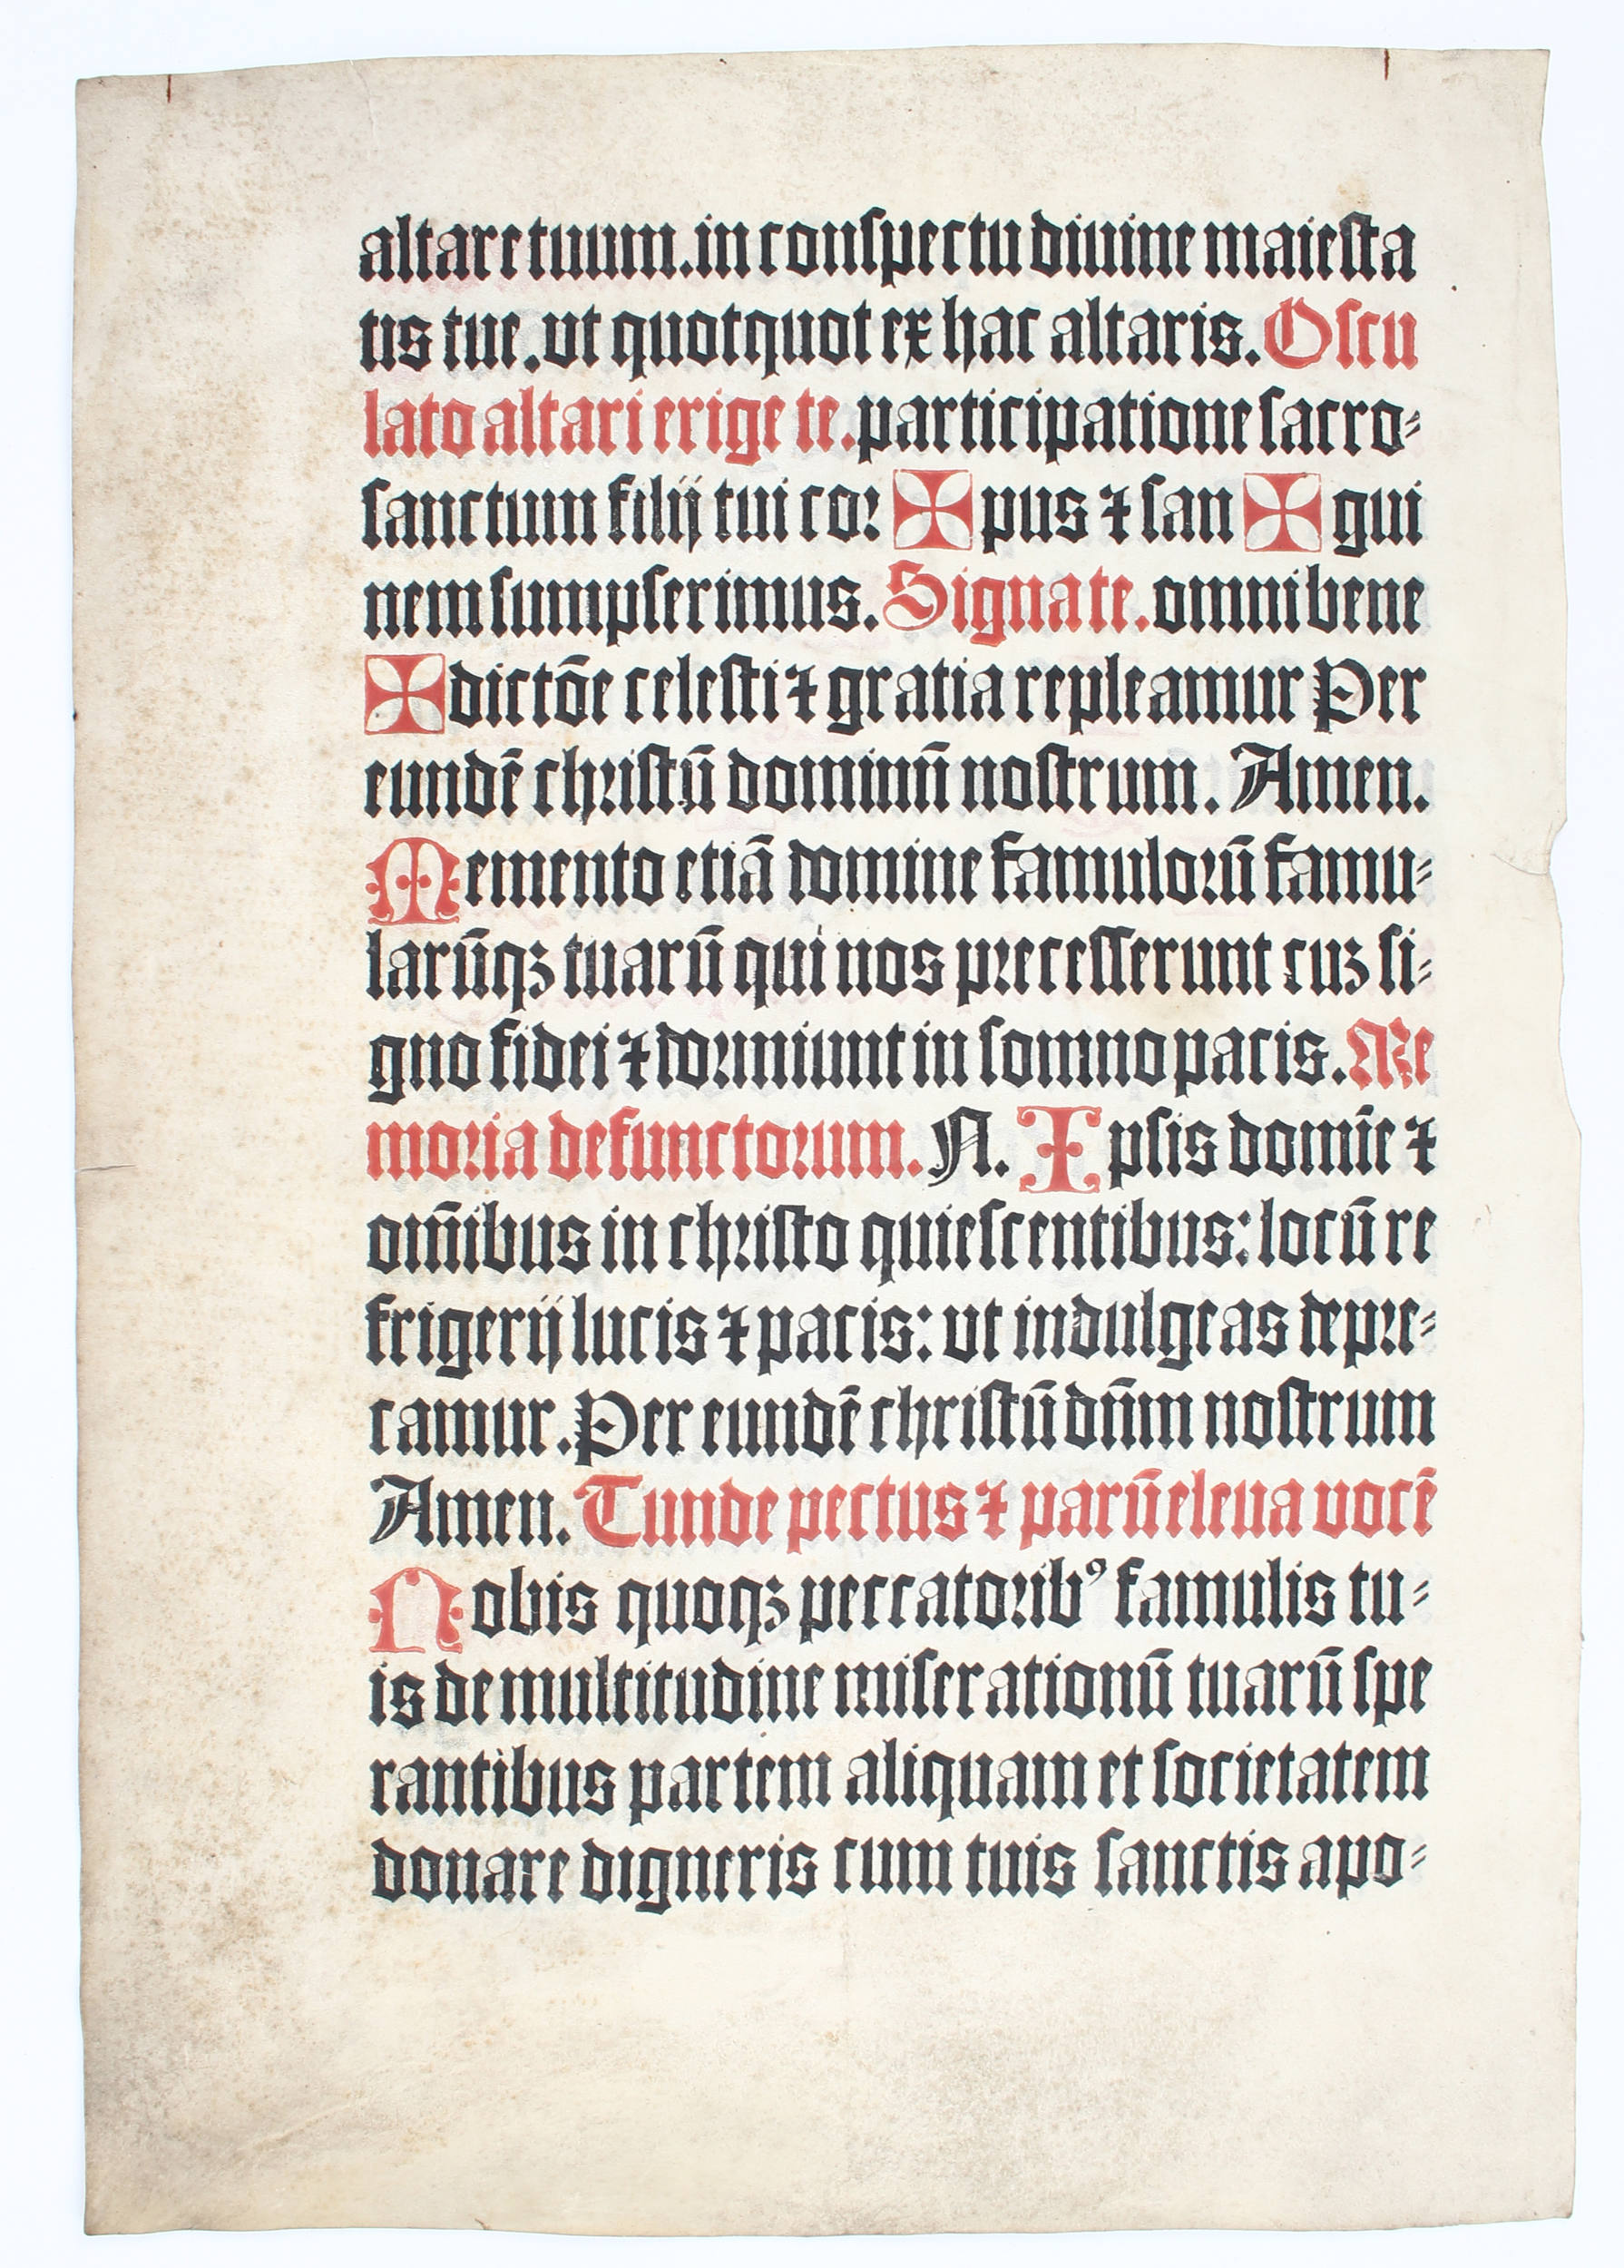 altare tuum. in conſpectu diuine maieſta
tis tue. ut quotquot ex hac altaris. Oſcu
lato altari erige te. participatione ſacro⸗
ſanctum filij tui coꝛ ✠ pus ⁊ ſan ✠ gui
nem ſumpſerimus. Signa te. omni bene
✠ dictōe celeſti ⁊ gratia repleamur Per
eundē chꝛiſtū dominū noſtrum. Amen.
Memento etiā domine famuloꝛū famu⸗
larūqꝫ tuarū qui nos pꝛeceſſerunt cuꝫ ſi⸗
gno fidei ⁊ doꝛmiunt in ſomno pacis. Me
moꝛia defunctoꝛum. N. Ipſis domīe ⁊
om̄ibus in chꝛiſto quieſcentibus: locū re
frigerij lucis ⁊ pacis: ut indulgeas depꝛe⸗
camur. Per eundē chriſtū dn̄m noſtrum
Amen. Tunde pectus ⁊ parū eleua vocē
Nobis quoqꝫ peccatoꝛibꝰ famulis tu⸗
is de multitudine miſerationū tuarū ſpe
rantibus partem aliquam et ſocietatem
donare digneris cum tuis ſanctis apo⸗